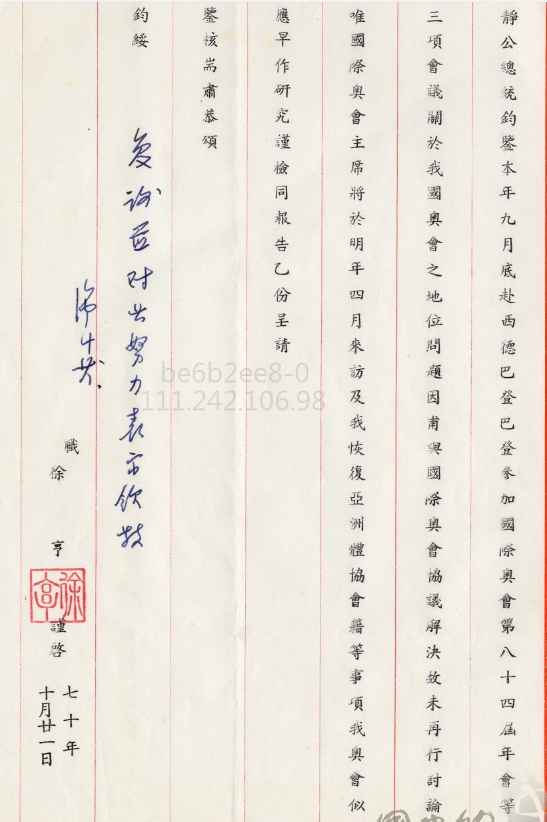 靜公總統鈞鑒本年九月底赴西德巴登巴登參加國際奧會第八十四屆年會等
三項會議關於我國奧會之地位問題因甫與國際奧會協議解決故未再行討論
唯國際奧會主席將於明年四月來訪及我恢復亞洲體協會籍等事項我奧會似
應早作研究謹檢同報告乙份呈請
鑒核耑肅恭頌
鈞綏
復謝並對其努力表示欽敬
職徐亨謹啓
徐亨
七十年
十月廿一日
be6b2ee8-0
111.242.106.98